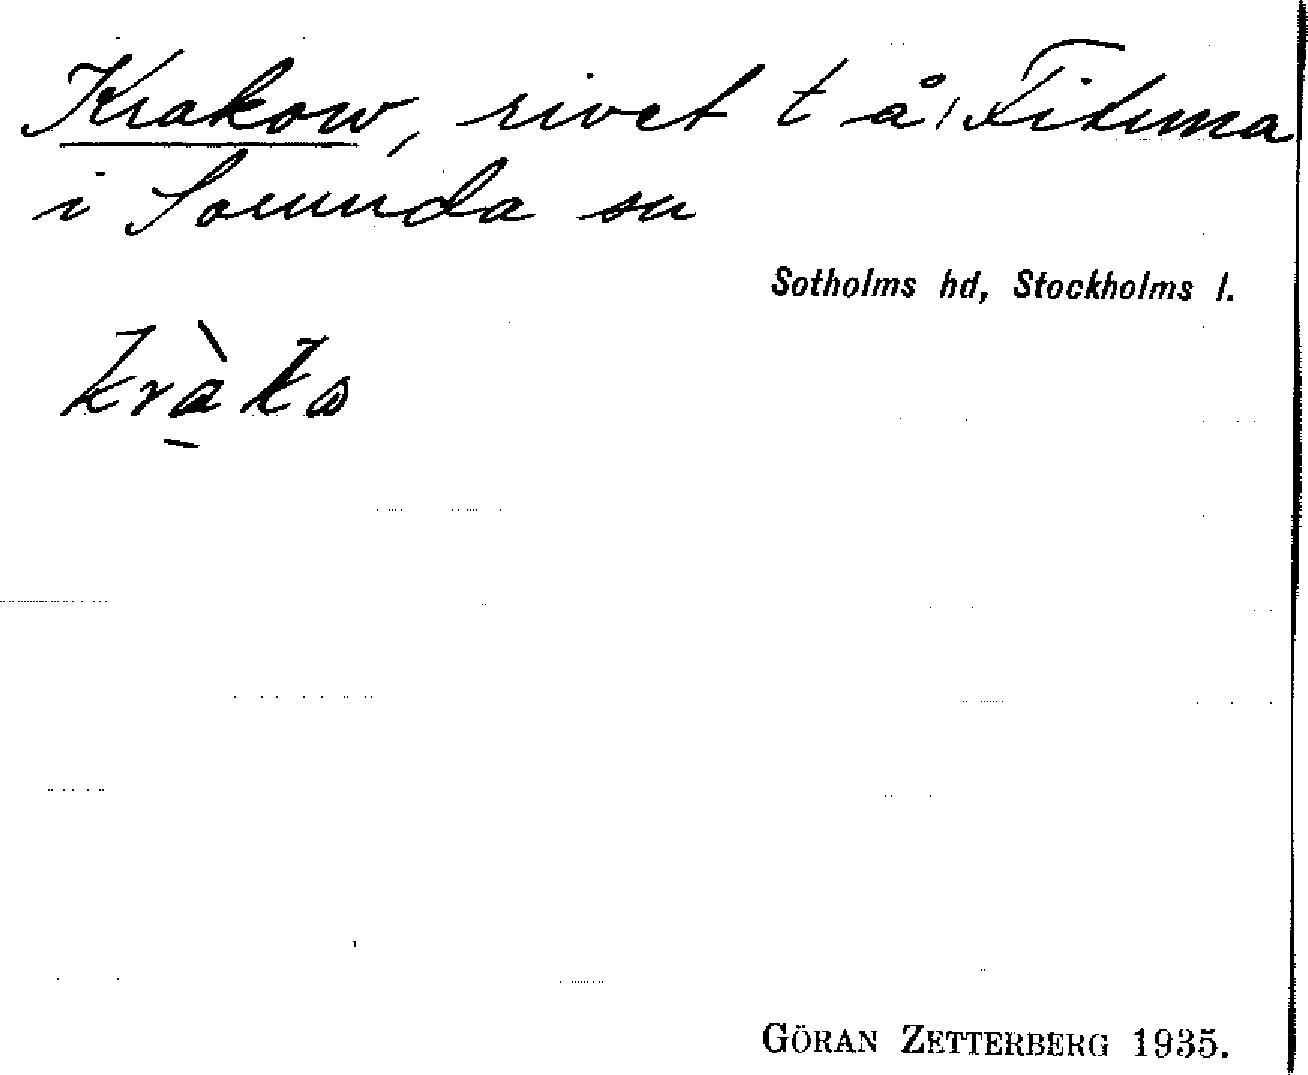 Krakow, rivet t å Fituna
i Sorunda sn
Sotholms hd, Stockholms l.
kràks
GÖRAN ZETTERBERG 1935.